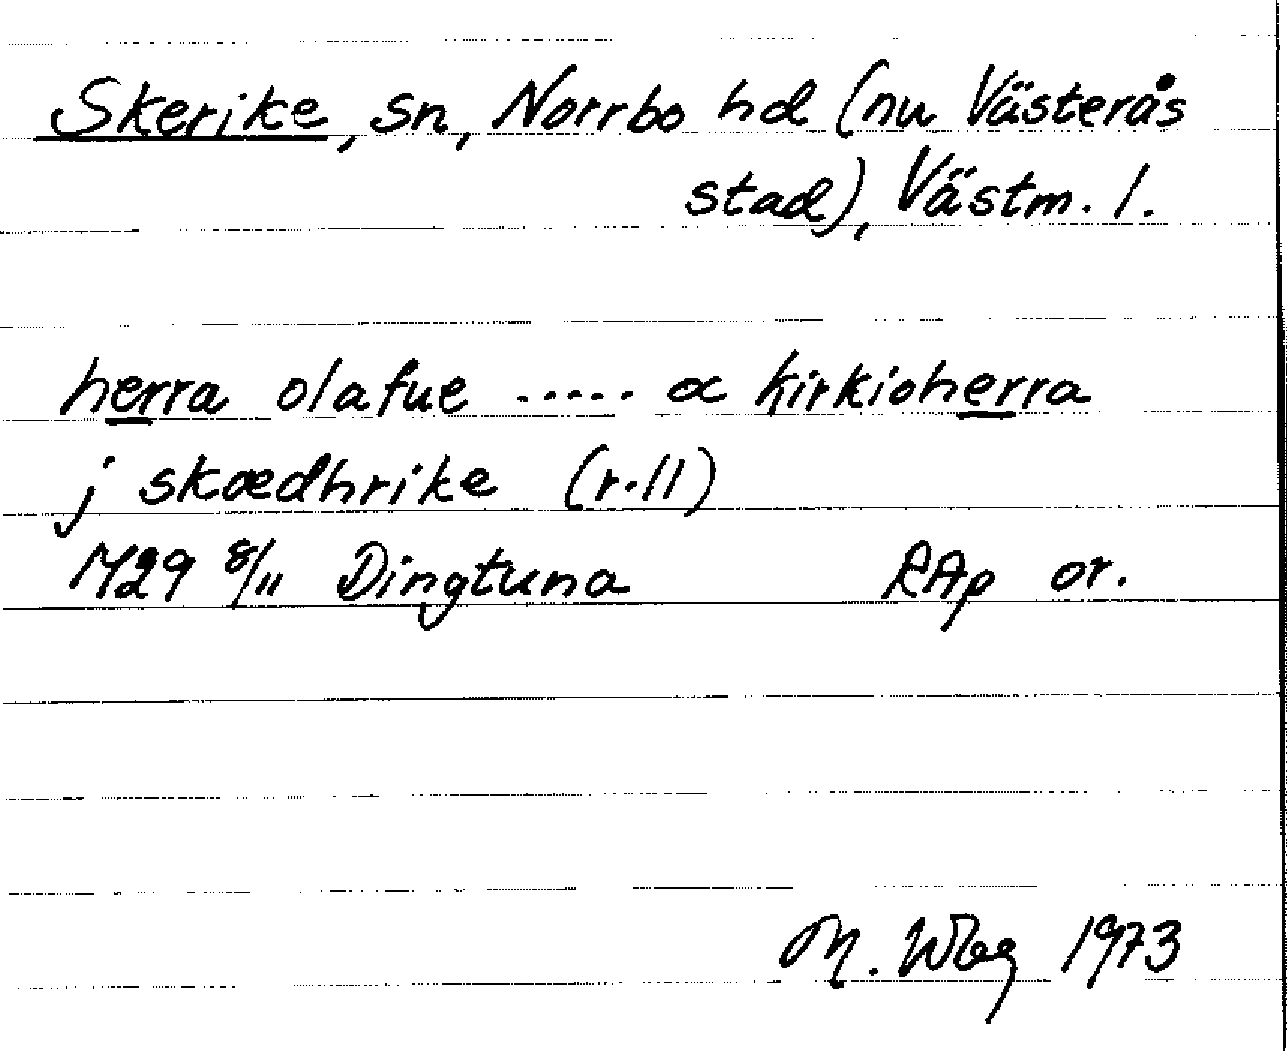 Skerike, sn, Norrbo hd (nu Västerås
stad), Västm. l.
herra olafue ..... oc kirkioherra
j skædhrike (r.11)
1429 8/11 Dingtuna RAp or.
M. Wbg 1973